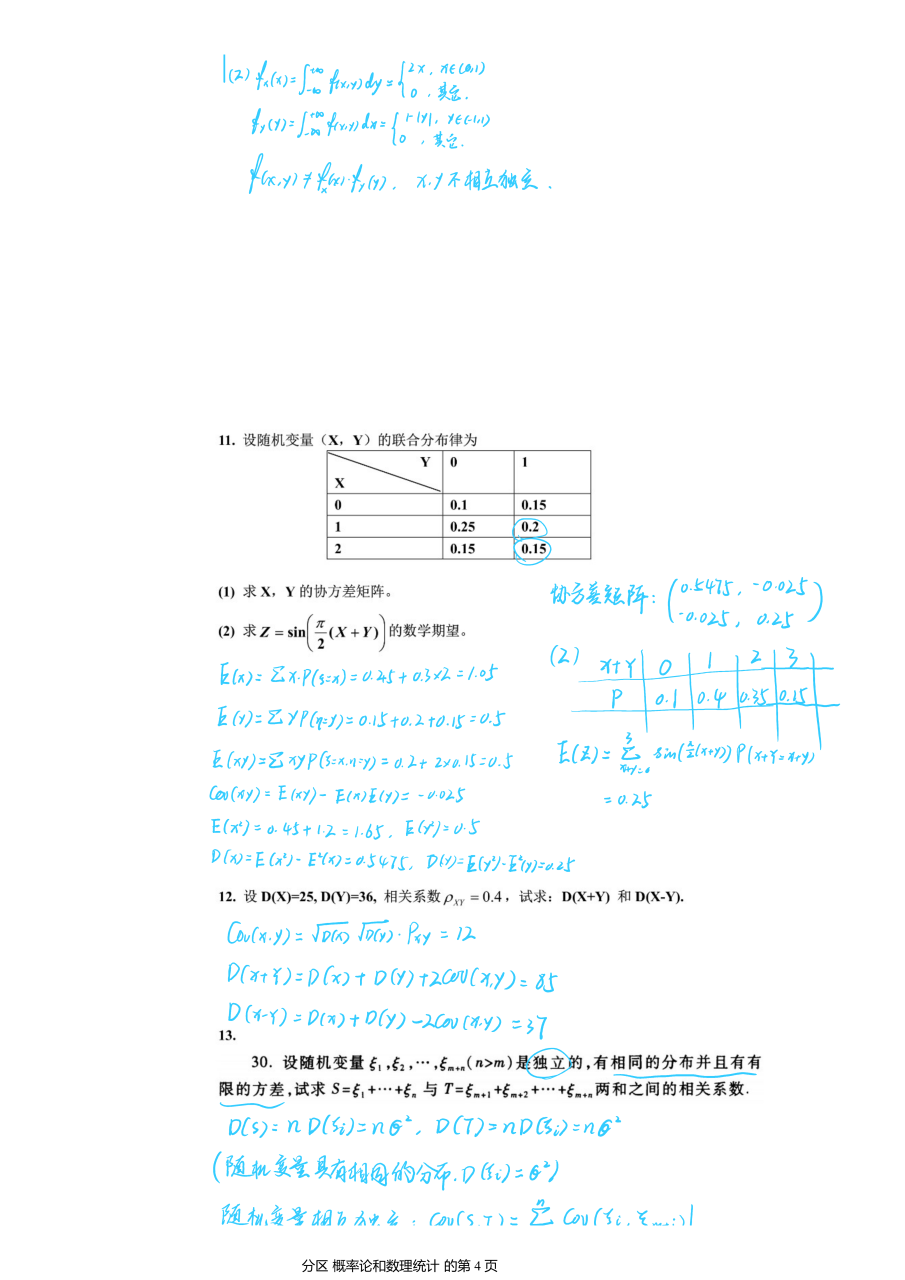 (2) f_X(x)=∫_{-∞}^{+∞} f(x,y)dy={2x, x∈(0,1)
0, 其它.
f_Y(y)=∫_{-∞}^{+∞} f(x,y)dx={1-|y|, y∈(-1,1)
0, 其它.
f(x,y)≠f_X(x)·f_Y(y), x,y不相互独立.
11. 设随机变量（X，Y）的联合分布律为
Y 0 1
X
0 0.1 0.15
1 0.25 0.2
2 0.15 0.15
(1) 求 X，Y 的协方差矩阵。
协方差矩阵: (0.5475, -0.025
-0.025, 0.25)
(2) 求 Z = sin(π/2 (X + Y)) 的数学期望。
E(x)=Σx·P(ξ=x)=0.45+0.3×2=1.05
E(y)=ΣyP(η=y)=0.15+0.2+0.15=0.5
E(xy)=ΣxyP(ξ=x,η=y)=0.2+2×0.15=0.5
Cov(xy)=E(xy)-E(x)E(y)=-0.025
E(x²)=0.45+1.2=1.65, E(y²)=0.5
D(x)=E(x²)-E²(x)=0.5475, D(y)=E(y²)-E²(y)=0.25
(2) x+Y 0 1 2 3
P 0.1 0.4 0.35 0.15
E(Z)=Σ_{x+y=0}^{3} sin(π/2(x+y))P(x+Y=x+y)
=0.25
12. 设 D(X)=25, D(Y)=36, 相关系数 ρ_XY = 0.4，试求：D(X+Y) 和 D(X-Y).
Cov(x,y)=√D(x) √D(y)·ρ_xy=12
D(x+Y)=D(x)+D(Y)+2Cov(x,y)=85
D(x-Y)=D(x)+D(Y)-2Cov(x,y)=37
13.
30. 设随机变量 ξ₁,ξ₂,⋯,ξ_{m+n}(n>m)是独立的,有相同的分布并且有有
限的方差,试求 S=ξ₁+⋯+ξ_n 与 T=ξ_{m+1}+ξ_{m+2}+⋯+ξ_{m+n}两和之间的相关系数.
D(S)=nD(ξi)=nσ², D(T)=nD(ξi)=nσ²
(随机变量具有相同的分布. D(ξi)=σ²)
随机变量相互独立: Cov(S,T)=Σ^n Cov(ξi,ξ_{m+i})
分区 概率论和数理统计 的第 4 页